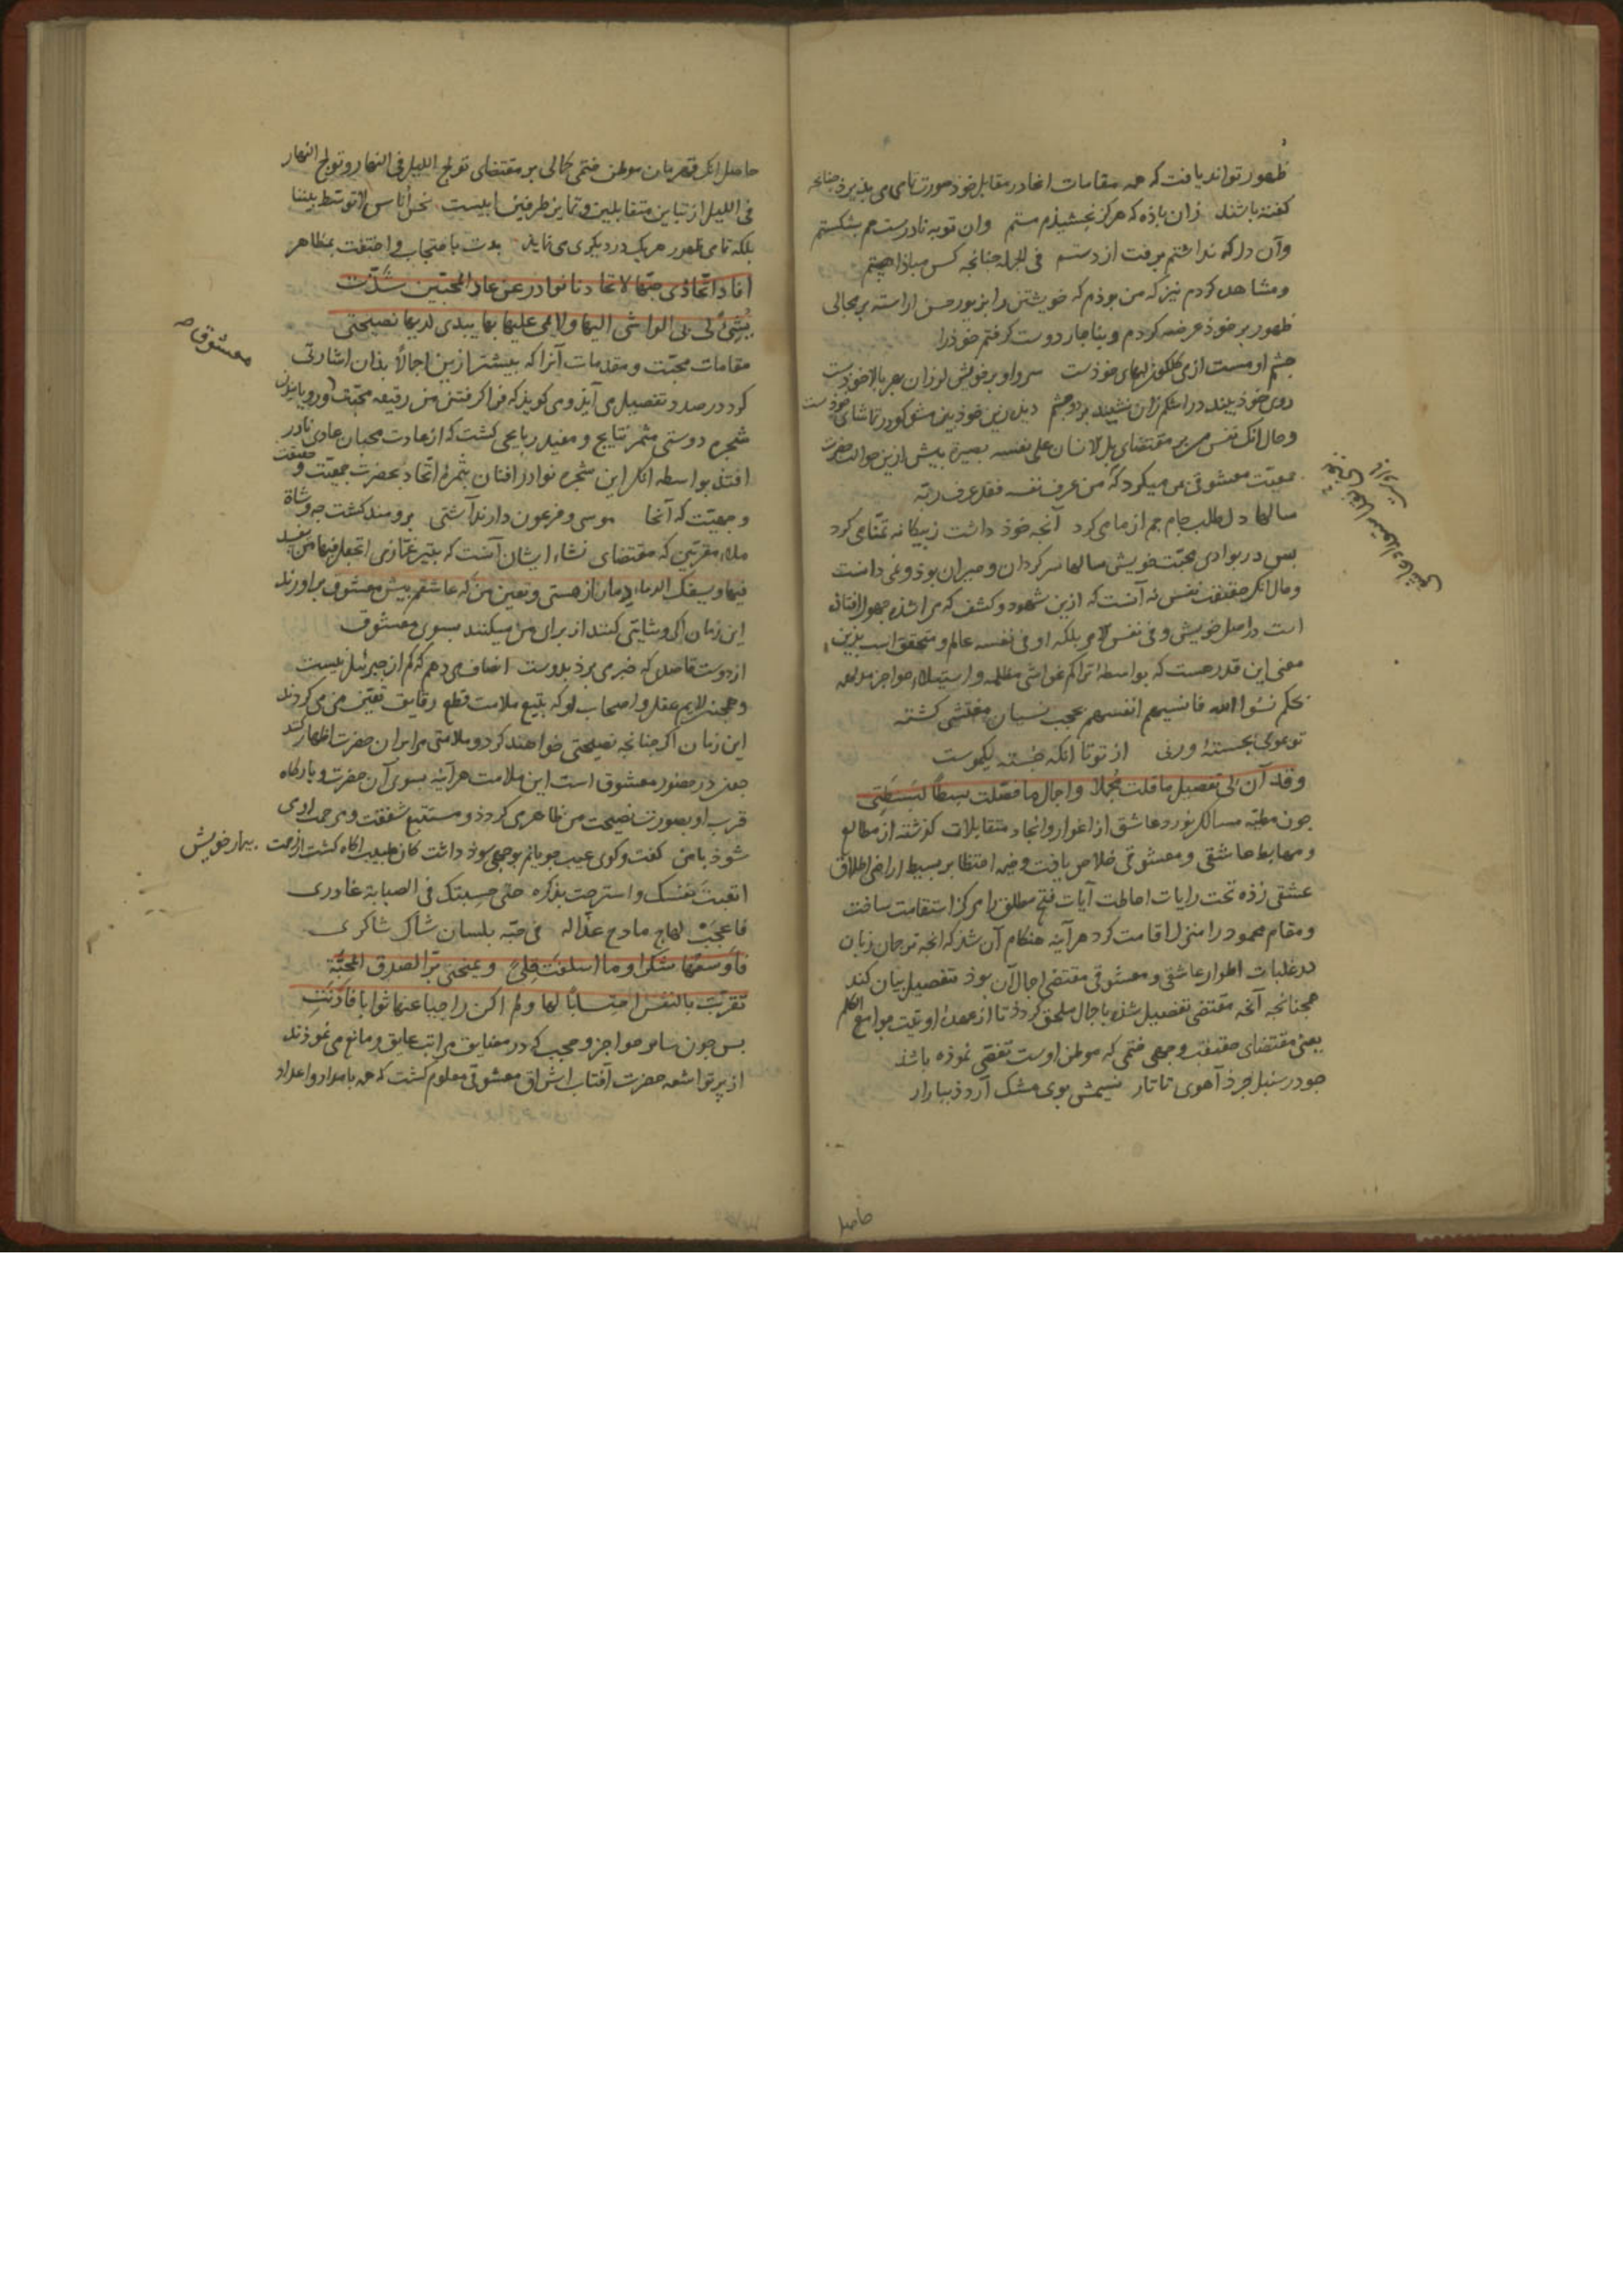 ظهور تواند یافت که همه مقامات اینها در مقابل خود صورت تمامی می پذیرد چنانچه
کفته باشند زان باده که هرکز نچشیذم مستم وان توبه نادرست هم بشکستم
وآن دل که نداشتم برفت از دستم فی الجمله چنانچه کس مباذا هستم
ومشاهده کردم نیز که من بوذم که خویشتن را بزیور حسن اراسته بر مجالی
ظهور بر خوذ عرضه کردم وبناچار دوست کرفتم خوذ را
چشم او مست از می کلکون لبهای خوذست سرو او بر خویش لرزان بهر بالا خوذست
روی خوذ بیند در اشکم زان نشیند بر دو چشم
وحال آنک نفس من بر مقتضای بل الانسان علی نفسه بصیرة پیش ازین حوالت بحضرت
جمعیت معشوقی من میکرد که من عرف نفسه فقد عرف ربه
سالها دل طلب جام جم از ما می کرد آنچه خوذ داشت ز بیکانه تمنا می کرد
بس در بوادی محبت خویش سالها سرکردان وحیران بوذ ونمی دانست
وحال آنکه حقیقت نفس نه آنست که ازین شهود وکشف که مرا شذه مجهول افتاذه
است در اصل خویش وفی نفس الامر بلکه او فی نفسه عالم ومتحقق است بذین
معنی این قدر هست که بواسطه تراکم غواشی مظلمه واستیلاء حواجز مدلهمه
بحکم نسوا الله فانسیهم انفسهم بحجب نسیان مغشی کشته
تو عوی بجستهٔ ورنی از تو تا آنکه جسته یکموست
وقد آن لی تفصیل ما قلت مجملا واجمال ما فصلت بسطا لبسطتی
چون مطیه مسالک نورد عاشق از اغوار وانجاد متقابلات کذشته از مطالع
ومهابط عاشقی ومعشوقی خلاص یافت وخیمه احتظا بر بسیط اراضی اطلاق
عشقی زذه تحت رایات احاطت آیات فتح مطلق را مرکز استقامت ساخت
ومقام محمود را منزل اقامت کرد هر آینه هنکام آن شذ که انچه ترجمان زبان
در غلبات اطوار عاشقی ومعشوقی مقتضی اجمال آن بوذ تفصیل بیان کند
همچنانچه آنچه مقتضی تفصیل شذه باجمال ملحق کردذ تا از عهدهٔ اوتیت جوامع الکلم
یعنی مقتضای حقیقت وجمعی ختمی که موطن اوست تفصی نموذه باشذ
چو در سنبل چرذ آهوی تاتار نسیمش بوی مشک آرذ ببازار
حاصل
حاصل انک قهرمان موطن ختمی کمالی بر مقتضای تولج اللیل فی النهار وتولج النهار
فی اللیل از تباین متقابلین وتمایز طرفین ابلیست نحن اناس لا توسط بیننا
بلکه تمامی ظهور هر یک در دیکری می نماید بدت باحتجاب واختفت بمظاهر
افاد اتحاذی حبها لاتحادنا نوادر عن عاد المحبین شذت
یشی لی بی الواشی الیها ولائمی علیها بها یبدی لدیها نصیحتی
مقامات محبت ومقدمات آنرا که پیشتر ازین اجمالا بذان اشارتی
کرد در صدد تفصیل می آیذ ومی کویذ که فرا کرفتن من رقیقه محبت
معشوق صح
شجره دوستی مثمر نتایج ومفید ربایحی کشت که از عادت محبان عادی نادر
افتذ بواسطه انک این شجره نوادر افنان بثمرهٔ اتحاد بحضرت جمعیت وحقیقت
وجهیت که آنجا موسی وفرعون دارند آشتی برومند کشت چه وشاة
ملاء مقربین که مقتضای نشاء ایشان آنست که بتیر غمازی اتجعل فیها من یفسد
فیها ویسفک الدماء دمار از هستی وتعین من که عاشقم پیش معشوق براورند
این زمان اکر وشایتی کنند از برای من میکنند بسوی معشوق
از دوست قاصدی که خبری برذ بدوست انصاف می دهم که کم از جبرئیل نیست
وهمچنین لایم عقل واصحاب او که بتیغ ملامت قطع رقایق تعین من می کردند
این زمان اکر چنانچه نصیحتی خواهند کرد وملامتی مرا بران حضرت اظهار کنند
چون در حضور معشوق است این ملامت هر آینه بسوی آن حضرت وبارکاه
قرب او بصورت نصیحت من ظاهر می کردذ ومستتبع شفقت ومرحمت اوی
شوذ با من کفت وکوی عیب جویانم بوجهی سوذ داشت کان طبیب آکاه کشت از زحمت بیمار خویش
اتعبت نفسک واسترحت بذکره حتی حسبتک فی الصبابة عاذری
فاعجب لهاج مادح عذاله فی حبه بلسان شاک شاکری
فاوسعها شکرا وما اسلفت قلی وتمنحنی برا لصدق المحبة
تقربت بالنفس احتسابا لها ولم اکن راجیا عنها ثوابا فادنت
بس چون سایر حواجز وحجب که در مضایق مراتب عایق ومانع می نموذند
از پرتو اشعه حضرت آفتاب اشراق معشوقی معلوم کشت که همه باموار واعداد